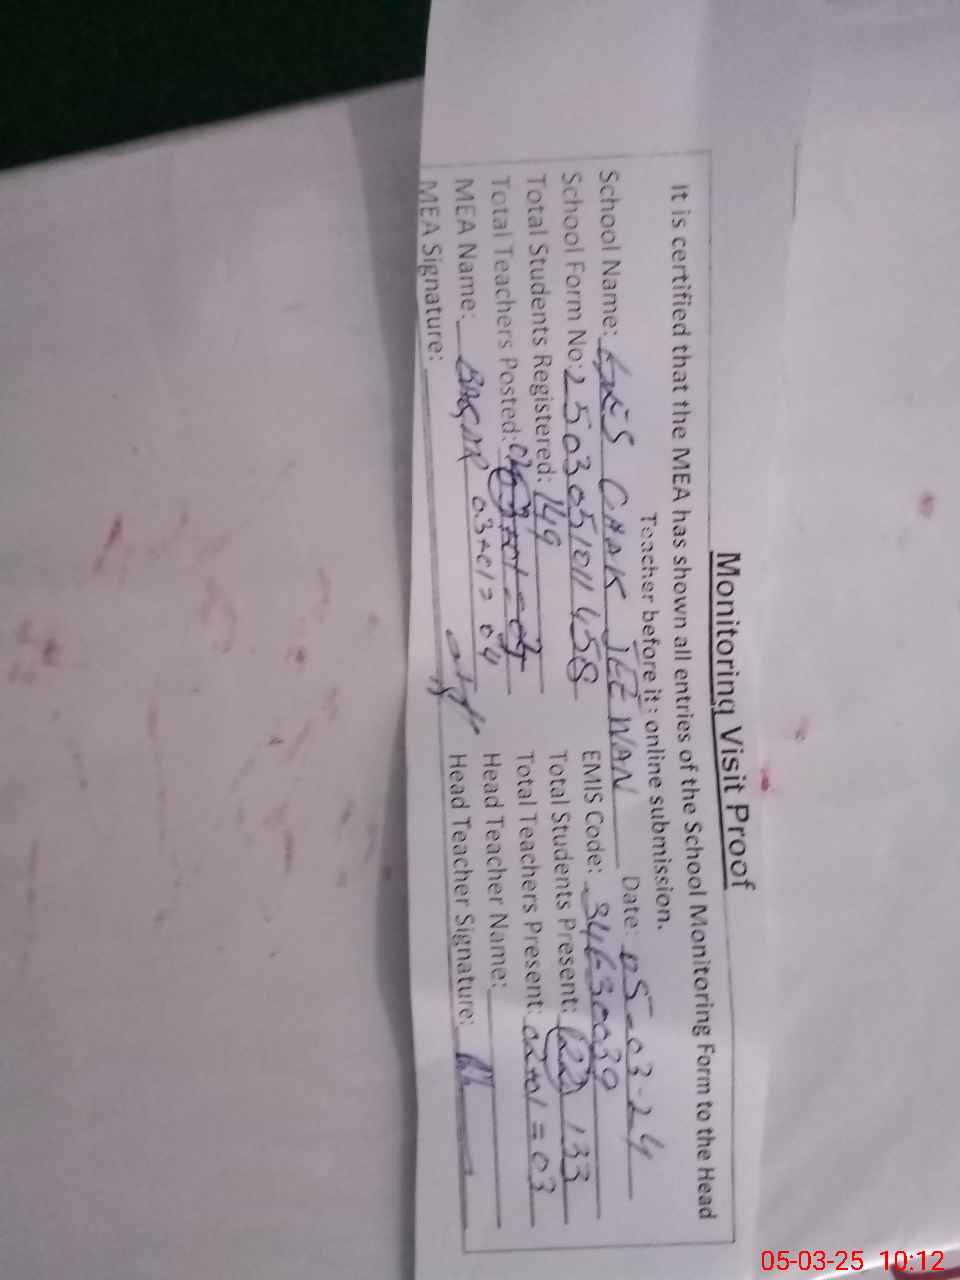 Monitoring Visit Proof
It is certified that the MEA has shown all entries of the School Monitoring Form to the Head
Teacher before it : online submission.
School Name: CHAK JEEWAN Date: 05-03-24
School Form No: 2503051011458 EMIS Code: 34630039
Total Students Registered: 149 Total Students Present: 133
Total Teachers Posted: Total Teachers Present: 02+01=03
MEA Name: 03+01=04 Head Teacher Name:
MEA Signature: Head Teacher Signature:
05-03-25 10:12